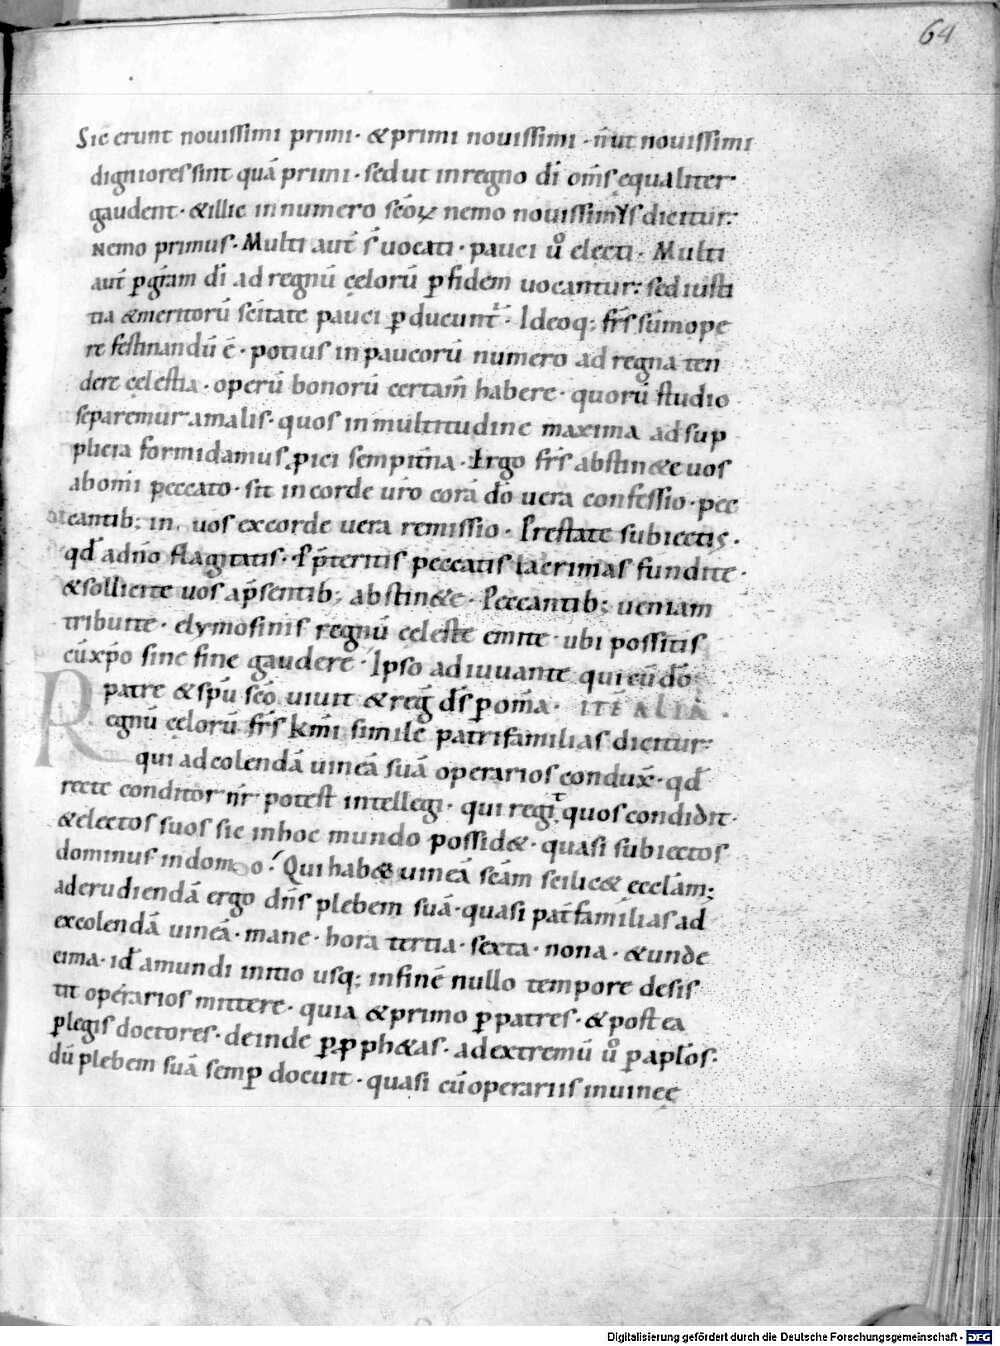 64
Sic erunt nouissimi primi · & primi nouissimi · n̄ ut nouissimi
digniores sint quā primi · sed ut in regno dī om̄s ęqualiter
gaudent · & illic in numero sc̄oꝝ nemo nouissimus dicitur:
nemo primus · Multi aut̄ s̄ uocati · pauci ů electi · Multi
aut̄ ꝑ gr̄am dī ad regnū cęlorū ꝑ fidem uocantur: sed iusti
tia & meritorū sc̄itate pauci ꝑducunt᷑ · Ideoq; fr̄s sūmope
re festinandū ē · potius in paucorū numero ad regna ten
dere cęlestia · operū bonorū certam̄ habere · quorū studio
separemur a malis · quos in multitudine maxima ad sup
plicia formidamus ꝓici sempit̄na · Ergo fr̄s abstin&e uos
ab om̄i peccato · sit in corde ur̄o corā dō uera confessio · pec
cantib; in uos ex corde uera remissio · Prestate subiectis ·
qd̄ a dn̄o flagitatis · P̄teritis peccatis lacrimas fundite ·
& sollicite uos a p̄sentib; abstin&e · Peccantib; ueniam
tribuite · elymosinis regnū cęleste emite · ubi possitis
cū xp̄o sine fine gaudere · Ipso adiuuante qui cū dō
patre & sp̄u sc̄o uiuit & reḡ d̄s ꝑ om̄a · ITĒ ALIA ·
Regnū cęlorū fr̄s km̄i simile patrifamilias dicitur:
qui ad colendā uineā suā operarios condux̄ · qd̄
recte conditor nr̄ potest intellegi · qui regit quos condidit ·
& electos suos sic in hoc mundo possid& · quasi subiectos
dominus in domo · Qui hab& uineā sc̄am scilic& ęccl̄am;
ad erudiendā ergo dn̄s plebem suā · quasi pat̄familias ad
excolendā uineā · mane · hora tertia · sexta · nona · & unde
cima · id̄ a mundi initio usq; in finē nullo tempore desis
tit operarios mittere · quia & primo ꝑ patres · & postea
ꝑ legis doctores · deinde ꝑ ꝓph&as · ad extremū ů ꝑ apl̄os ·
dū plebem suā semꝑ docuit · quasi cū operariis in uineę
Digitalisierung gefördert durch die Deutsche Forschungsgemeinschaft - DFG